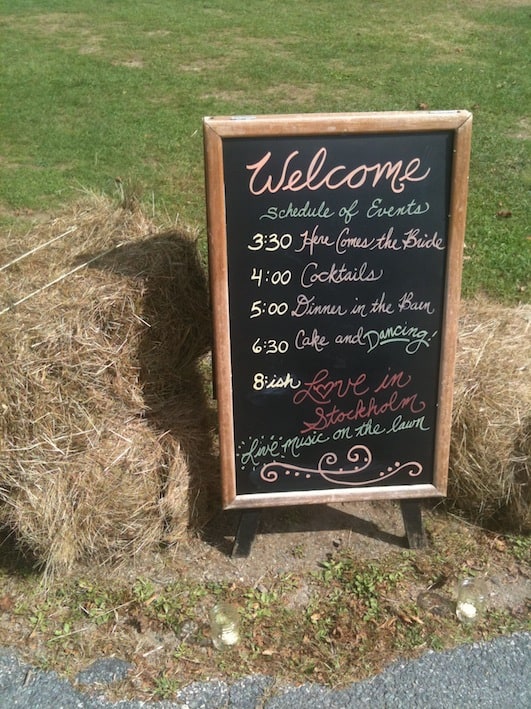 Welcome
Schedule of Events
3:30 Here Comes the Bride
4:00 Cocktails
5:00 Dinner in the Barn
6:30 Cake and Dancing!
8:ish Love in
Stockholm
Live music on the lawn